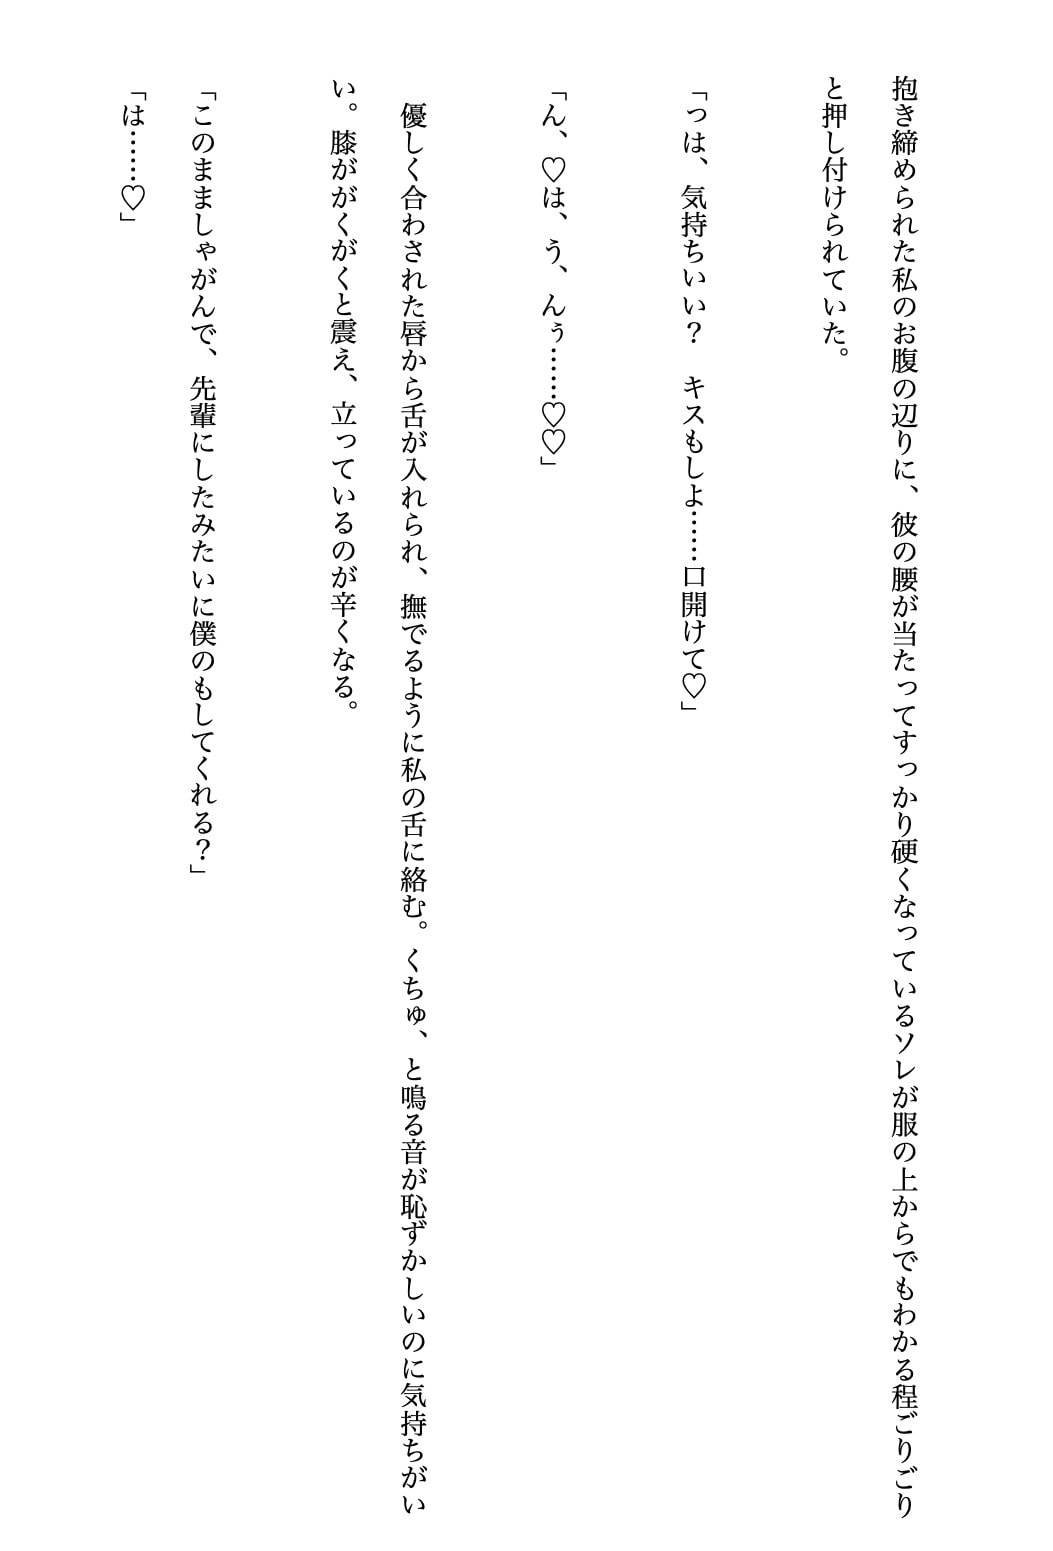 抱き締められた私のお腹の辺りに、彼の腰が当たってすっかり硬くなっているソレが服の上からでもわかる程ごりごり
と押し付けられていた。
「っは、気持ちいい？　キスもしよ……口開けて♡」
「ん、♡は、う、んぅ……♡♡」
　優しく合わされた唇から舌が入れられ、撫でるように私の舌に絡む。くちゅ、と鳴る音が恥ずかしいのに気持ちがい
い。膝ががくがくと震え、立っているのが辛くなる。
「このまましゃがんで、先輩にしたみたいに僕のもしてくれる？」
「は……♡」